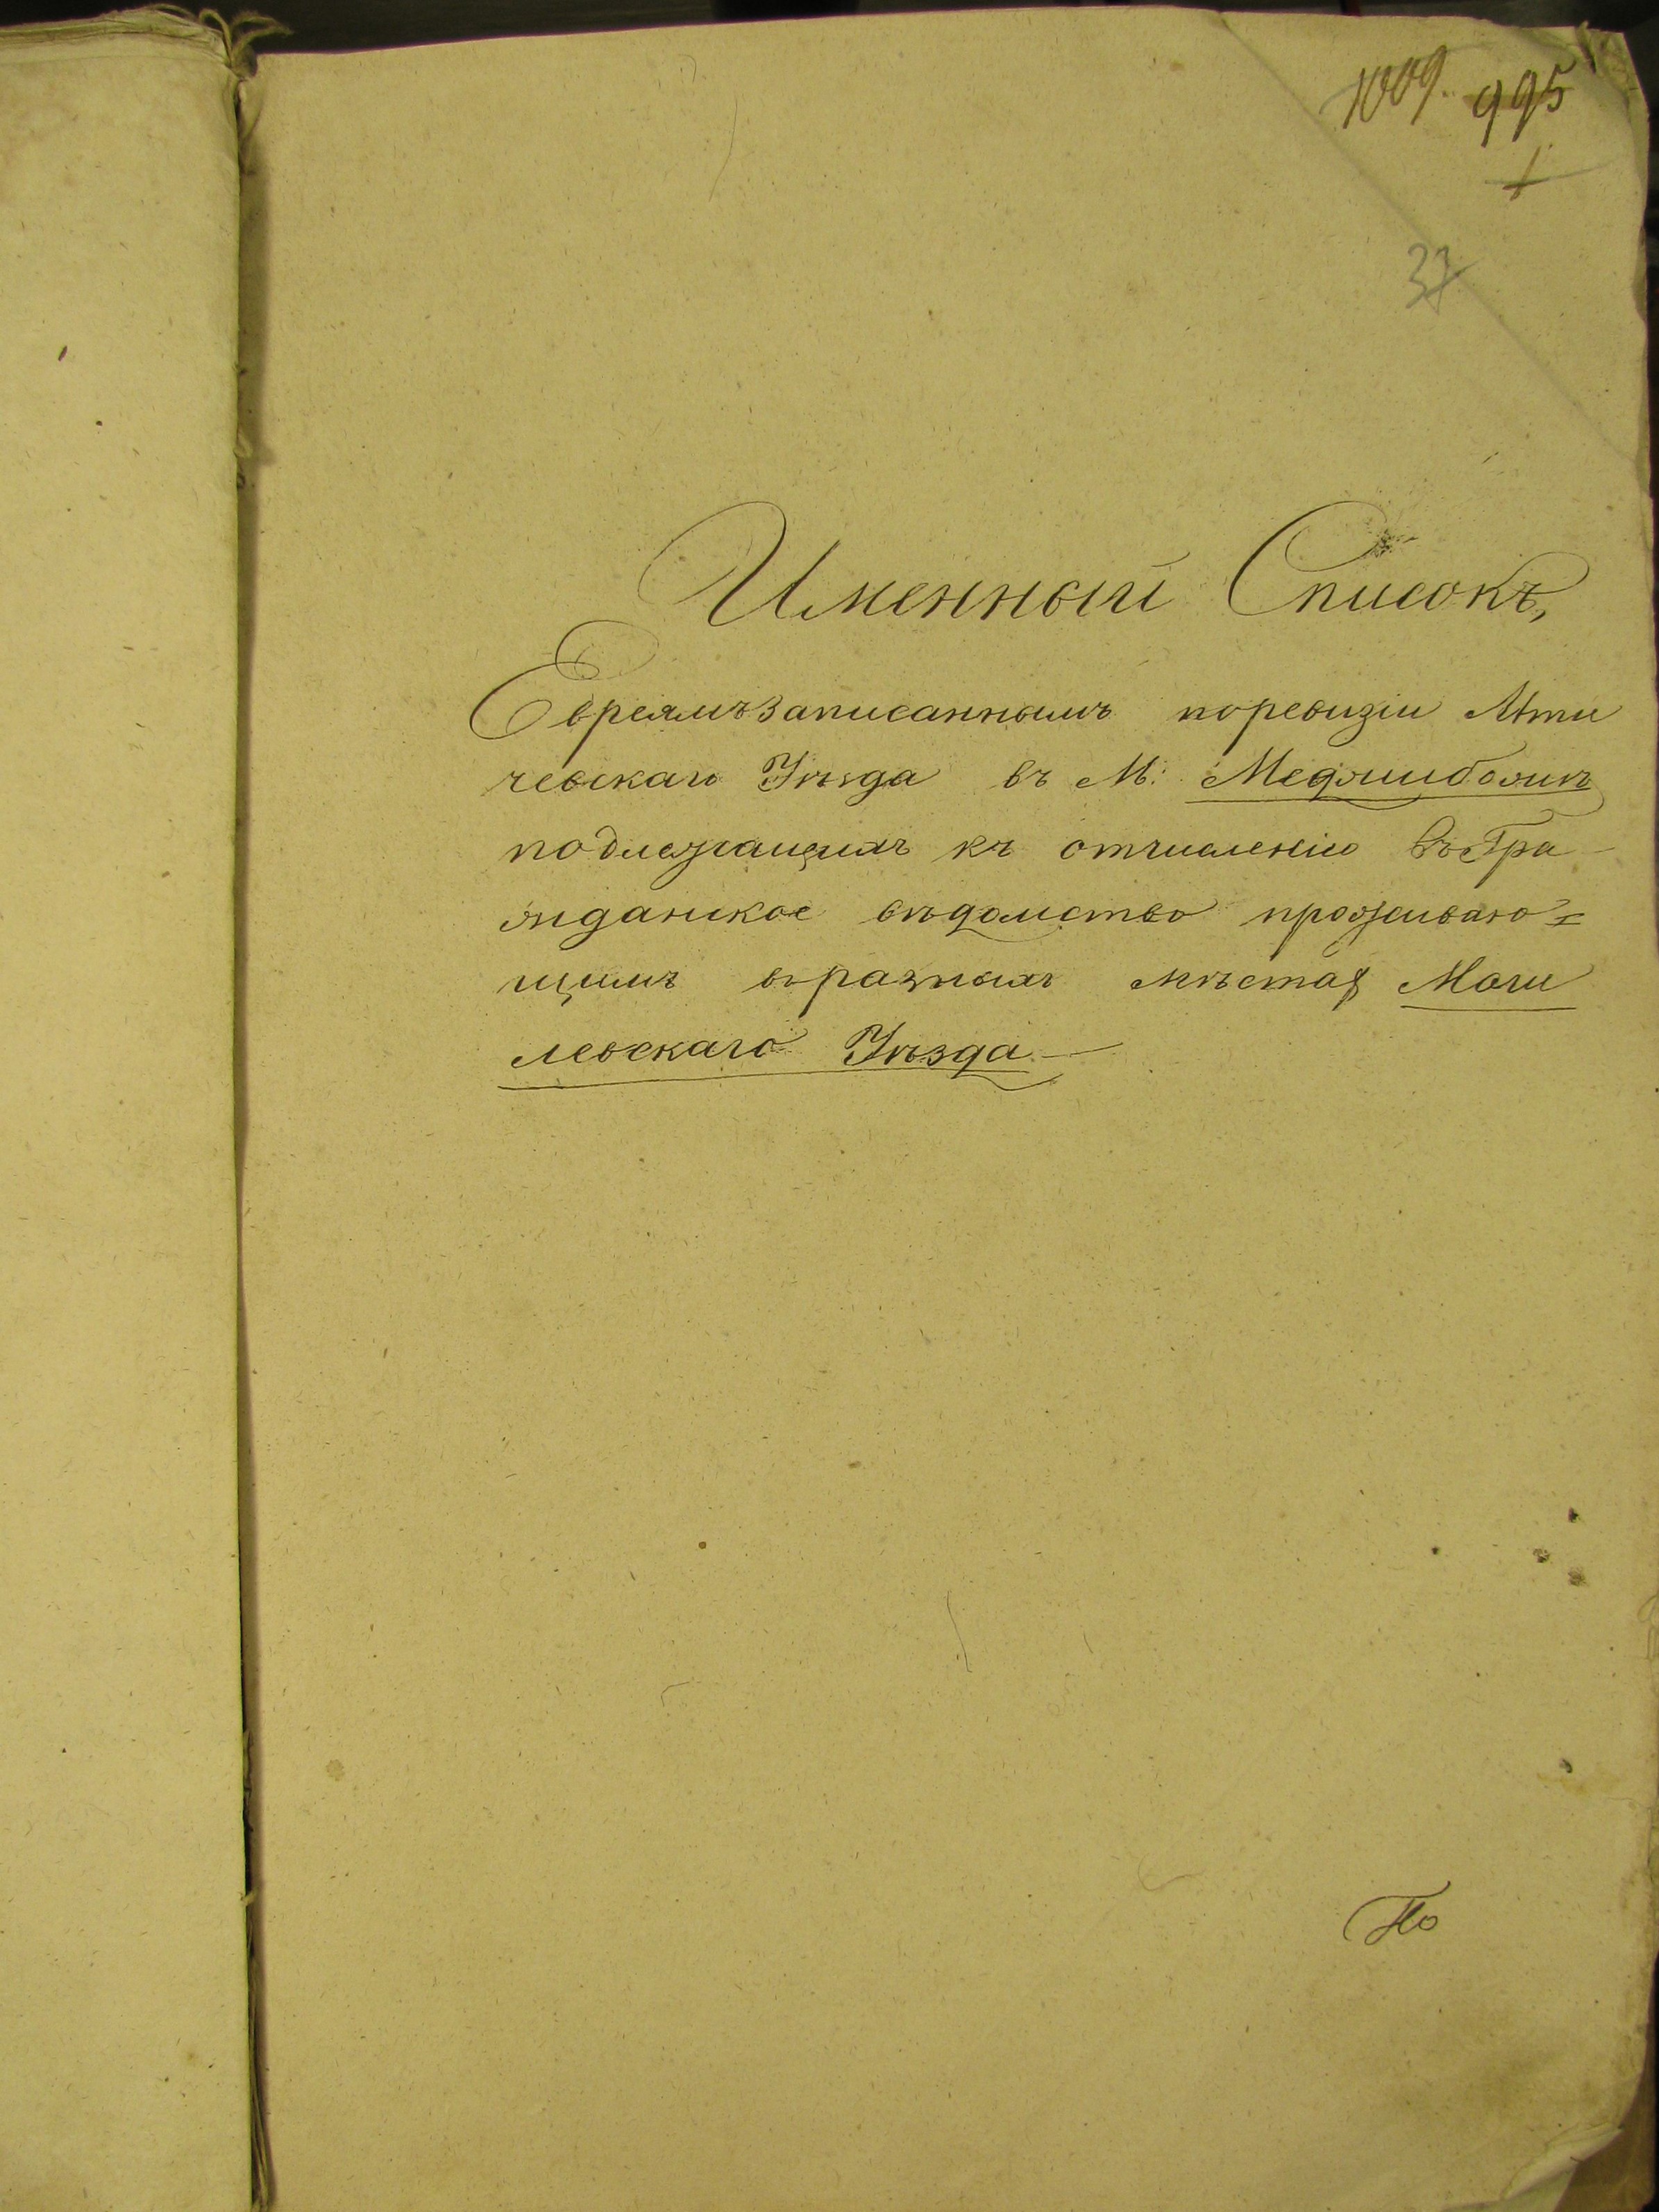 1009. 995
37
Именный Списокъ,
Евреямъ записаннымъ поревизіи Лѣти
чевскаго Уѣзда въ М: Меджибожѣ
подлежащихъ къ отчисленію въ Гра
жданское вѣдомство проживаю=
щимъ въ разныхъ мѣстах Моги
левскаго Уѣзда
По